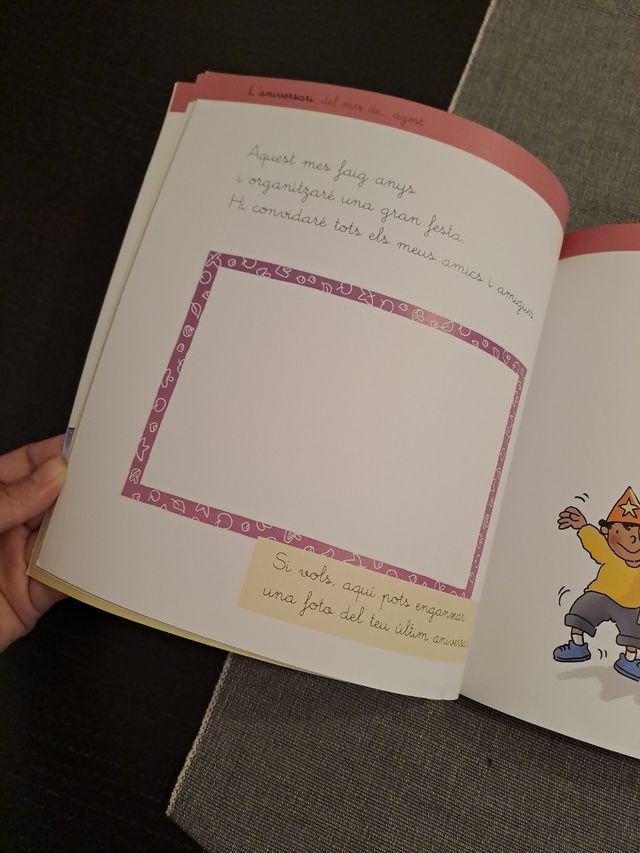 L'aniversari del mes de... agost
Aquest mes faig anys
i organitzaré una gran festa.
Hi convidaré tots els meus amics i amigues.
Si vols, aquí pots enganxar
una foto del teu últim aniversari